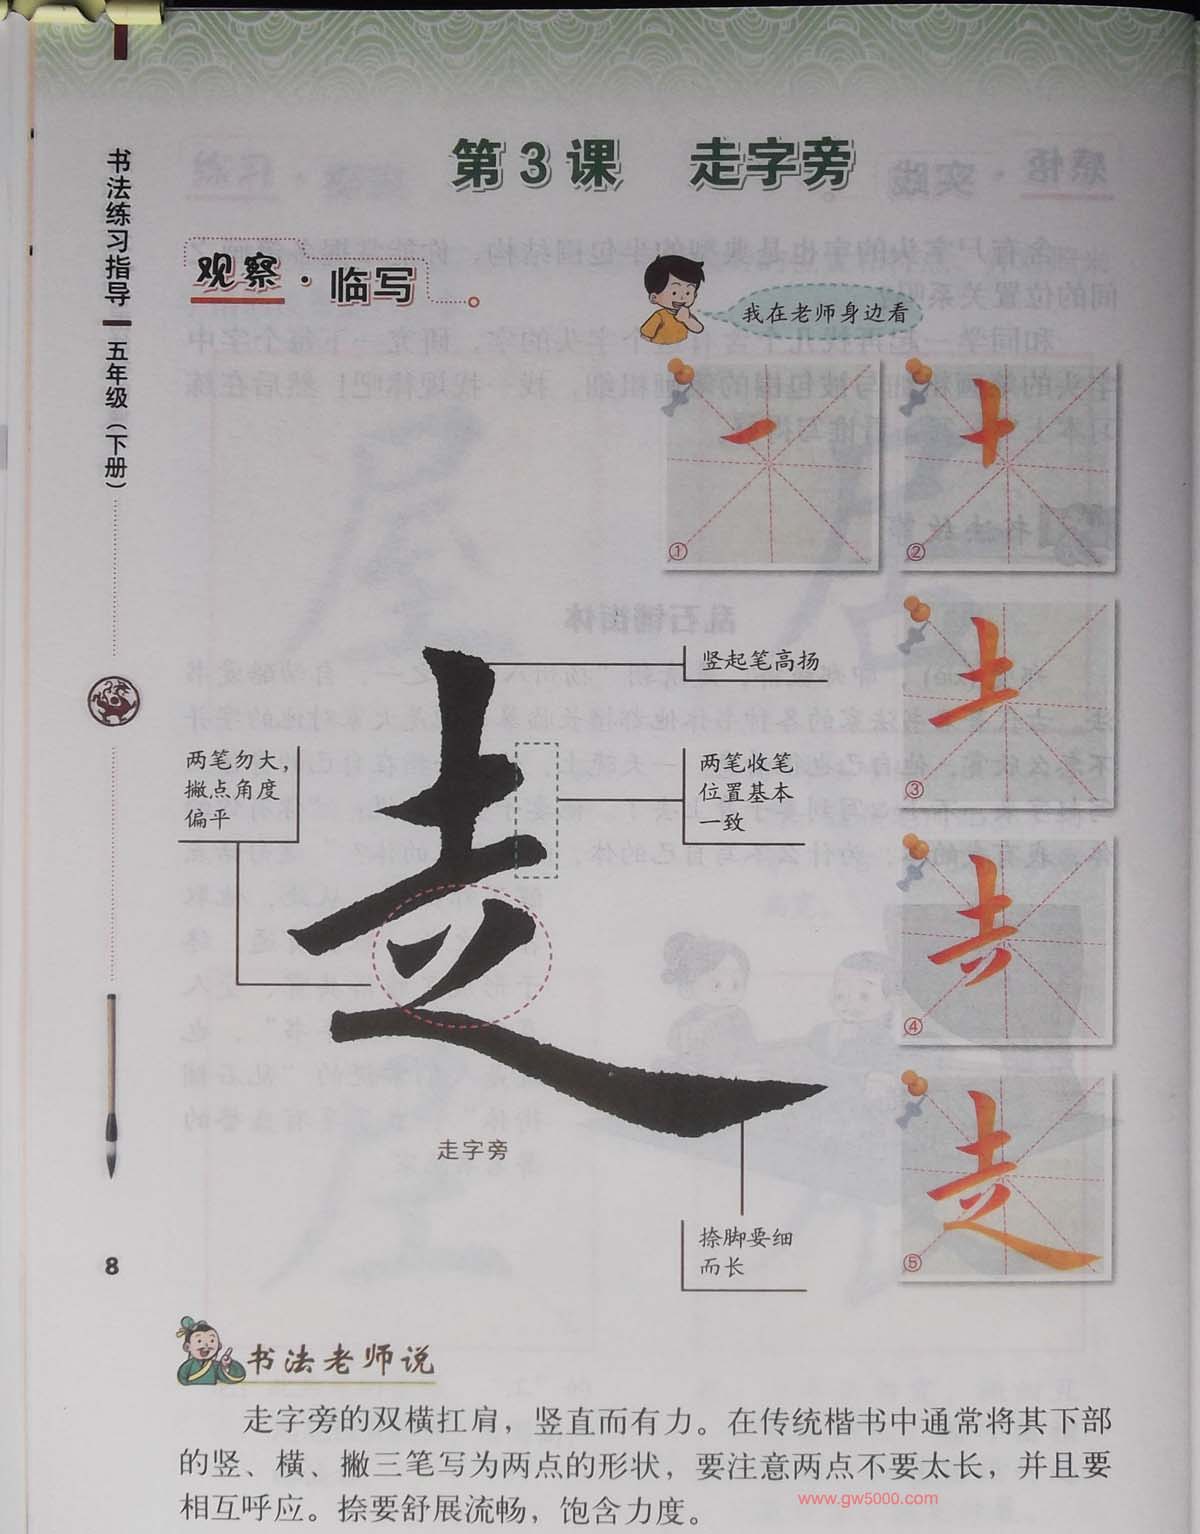 第3课 走字旁
书法练习指导 五年级（下册）
观察·临写
我在老师身边看
①
②
③
④
⑤
竖起笔高扬
两笔勿大，
撇点角度
偏平
两笔收笔
位置基本
一致
走字旁
捺脚要细
而长
8
书法老师说
走字旁的双横扛肩，竖直而有力。在传统楷书中通常将其下部
的竖、横、撇三笔写为两点的形状，要注意两点不要太长，并且要
相互呼应。捺要舒展流畅，饱含力度。
www.gw5000.com